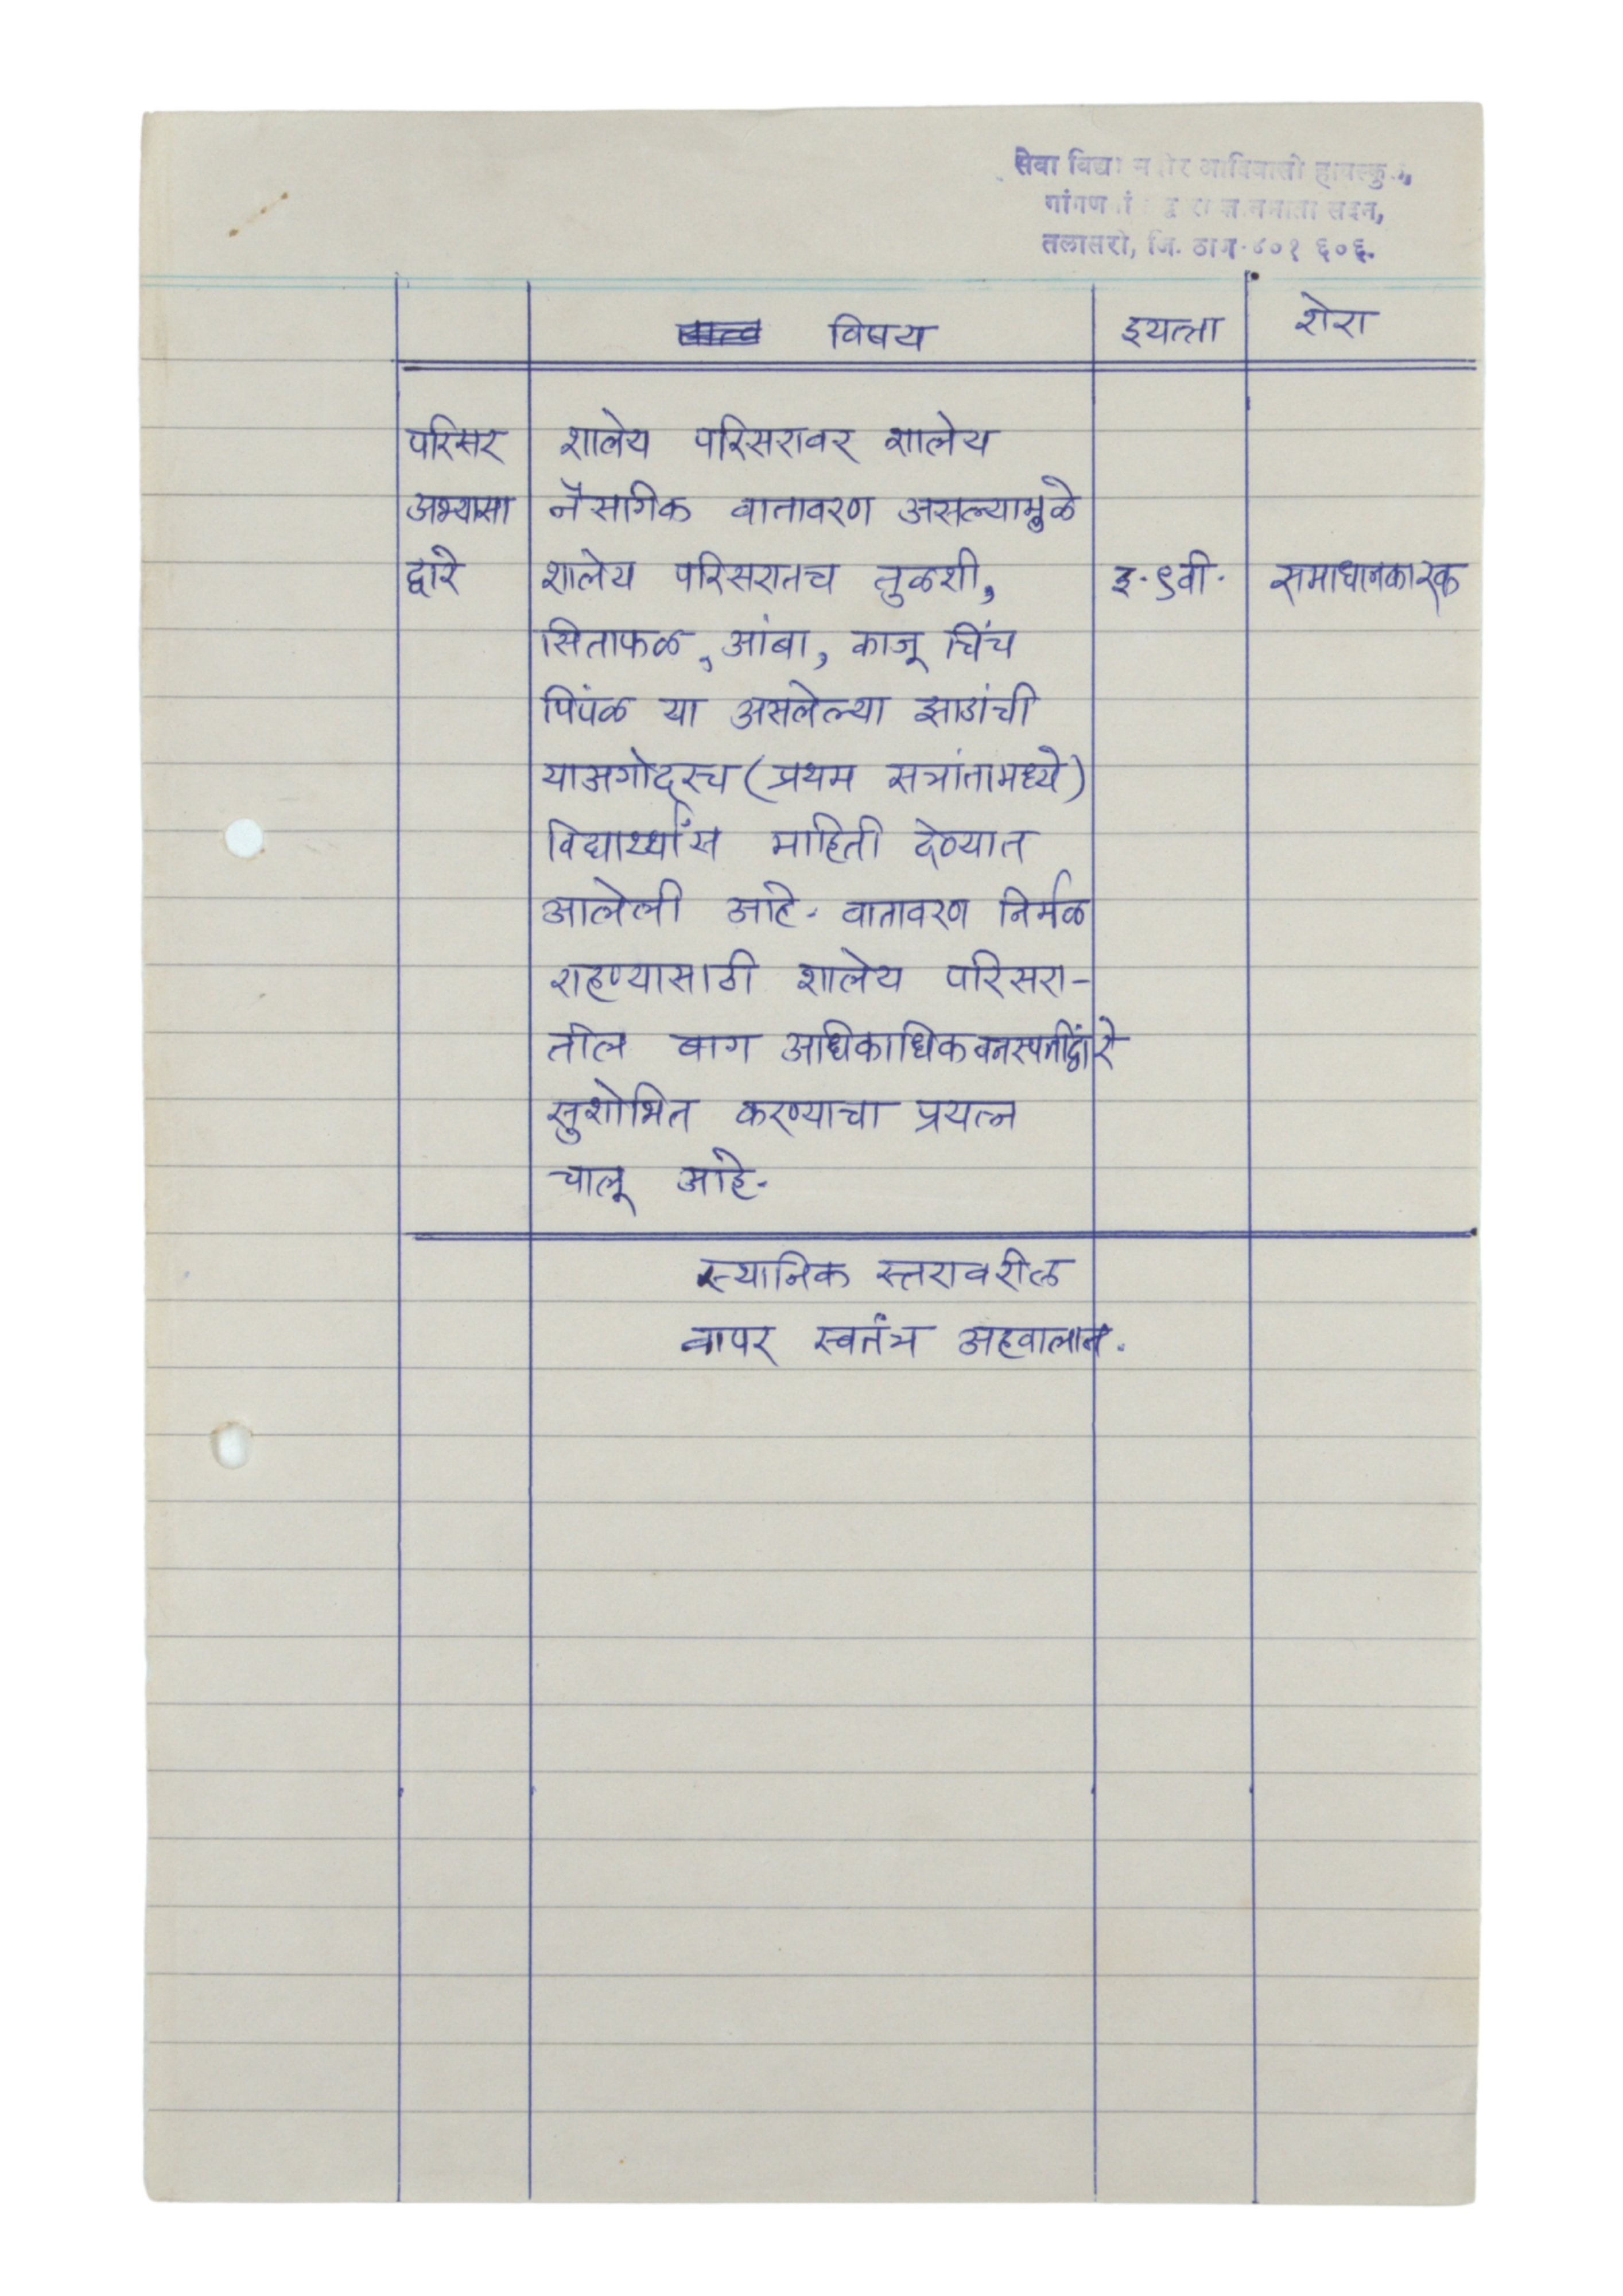 सेवा विद्या आदिवासी
तलासरी, जि. ४०१ ६०६.
विषय इयत्ता शेरा
परिसर शालेय परिसरावर शालेय
अभ्यासा नैसर्गिक वातावरण असल्यामुळे
द्वारे शालेय परिसरातच तुळशी, इ. ९वी. समाधानकारक
सिताफळ, आंबा, काजू चिंच
पिंपळ या असलेल्या झाडांची
याअगोदरच (प्रथम सत्रांतामध्ये)
विद्यार्थ्यांस माहिती देण्यात
आलेली आहे. वातावरण निर्मळ
राहण्यासाठी शालेय परिसरा-
तील बाग अधिकाधिक वनस्पतींद्वारे
सुशोभित करण्याचा प्रयत्न
चालू आहे.
स्थानिक स्तरावरील
वापर स्वतंत्र अहवालात.